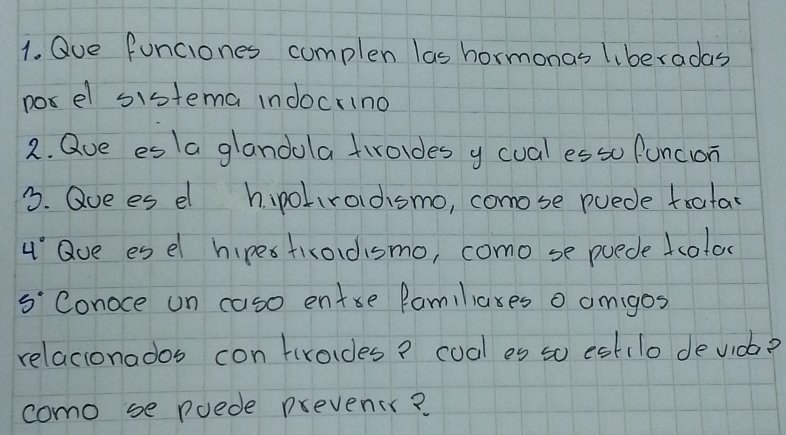 1. Que funciones cumplen las hormonas liberadas
por el sistema indocrino
2. Que es la glandula tiroides y cual es su función
3. Que es el hipotiroidismo, como se puede tratar
4° Que es el hipertiroidismo, como se puede tratar
5° Conoce un caso entre familiares o amigos
relacionados con tiroides? cual es su estilo de vida?
como se puede prevenir?